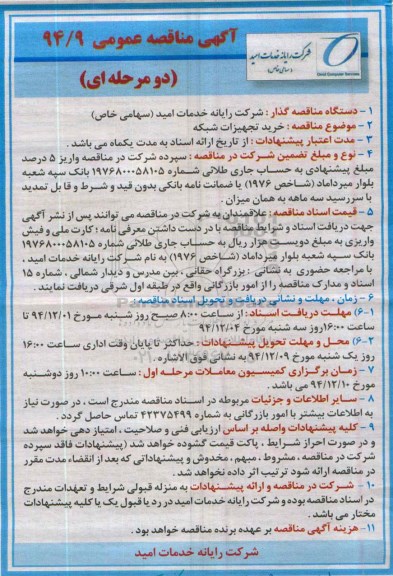 آگهی مناقصه عمومی ۹۴/۹
(دو مرحله ای)
شرکت رایانه خدمات امید
(سهامی خاص)
Omid Computer Services
۱ - دستگاه مناقصه گذار : شرکت رایانه خدمات امید (سهامی خاص)
۲ - موضوع مناقصه : خرید تجهیزات شبکه
۳ - مدت اعتبار پیشنهادات : از تاریخ ارائه اسناد به مدت یکماه می باشد .
۴ - نوع و مبلغ تضمین شرکت در مناقصه : سپرده شرکت در مناقصه واریز ۵ درصد
مبلغ پیشنهادی به حساب جاری طلائی شماره ۱۹۷۶۸۰۰۰۵۸۱۰۵ بانک سپه شعبه
بلوار میرداماد (شاخص ۱۹۷۶) یا ضمانت نامه بانکی بدون قید و شرط و قابل تمدید
با سررسید سه ماهه به همان میزان .
۵ - قیمت اسناد مناقصه : علاقمندان به شرکت در مناقصه می توانند پس از نشر آگهی
جهت دریافت اسناد و شرایط مناقصه با در دست داشتن معرفی نامه : کارت ملی و فیش
واریزی به مبلغ دویست هزار ریال به حساب جاری طلائی شماره ۱۹۷۶۸۰۰۰۵۸۱۰۵
بانک سپه شعبه بلوار میرداماد (شاخص ۱۹۷۶) به نام شرکت رایانه خدمات امید ،
با مراجعه حضوری به نشانی : بزرگراه حقانی ، بین مدرس و دیدار شمالی ، شماره ۱۵
اسناد و مدارک مناقصه را از امور بازرگانی واقع در طبقه اول شرقی دریافت نمایند .
۶ - زمان ، مهلت و نشانی دریافت و تحویل اسناد مناقصه
۶-۱) مهلت دریافت اسناد : از ساعت ۸:۰۰ صبح روز شنبه مورخ ۹۴/۱۲/۰۱ تا
ساعت ۱۶:۰۰ روز سه شنبه مورخ ۹۴/۱۲/۰۴
۶-۲) محل و مهلت تحویل پیشنهادات : حداکثر تا پایان وقت اداری ساعت ۱۶:۰۰
روز یک شنبه مورخ ۹۴/۱۲/۰۹ به نشانی فوق الاشاره .
۷ - زمان برگزاری کمیسیون معاملات مرحله اول : ساعت ۱۰:۰۰ روز دوشنبه
مورخ ۹۴/۱۲/۱۰ می باشد .
۸ - سایر اطلاعات و جزئیات مربوطه در اسناد مناقصه مندرج است ، در صورت نیاز
به اطلاعات بیشتر با امور بازرگانی به شماره ۴۲۳۷۵۴۹۹ تماس حاصل گردد .
۹ - کلیه پیشنهادات واصله بر اساس ارزیابی فنی و صلاحیت ، امتیاز دهی خواهد شد
و در صورت احراز شرایط ، پاکت قیمت گشوده خواهد شد (پیشنهادات فاقد سپرده
شرکت در مناقصه ، مشروط ، مبهم ، مخدوش و پیشنهاداتی که بعد از انقضاء مدت مقرر
در مناقصه ارائه شود ترتیب اثر داده نخواهد شد.
۱۰ - شرکت در مناقصه و ارائه پیشنهادات به منزله قبولی شرایط و تعهدات مندرج
در اسناد مناقصه بوده و شرکت رایانه خدمات امید در رد یا قبول یک یا کلیه پیشنهادات
مختار می باشد .
۱۱- هزینه آگهی مناقصه بر عهده برنده مناقصه خواهد بود .
شرکت رایانه خدمات امید